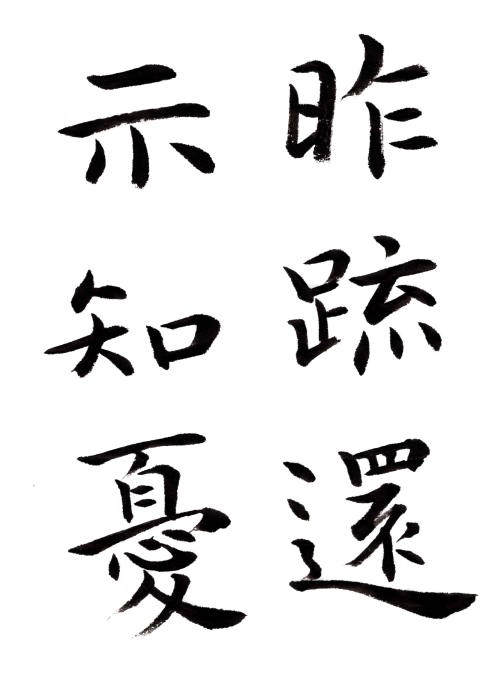 昨䟽還
示知憂